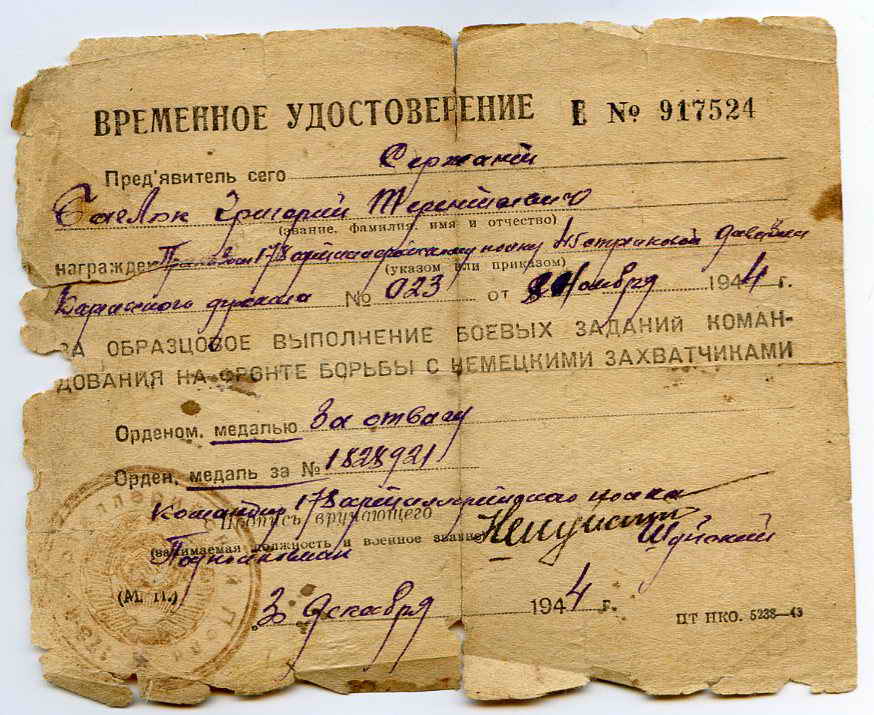 ВРЕМЕННОЕ УДОСТОВЕРЕНИЕ Е № 917524
Пред'явитель сего Сержант
Григорий Терентьевич
(звание, фамилия, имя и отчество)
награжден Приказом 178 артиллерийскому полку 45 стрелковой дивизии
(указом или приказом)
Карельского фронта № 023 от 8 Ноября 1944 г.
ЗА ОБРАЗЦОВОЕ ВЫПОЛНЕНИЕ БОЕВЫХ ЗАДАНИЙ КОМАН-
ДОВАНИЯ НА ФРОНТЕ БОРЬБЫ С НЕМЕЦКИМИ ЗАХВАТЧИКАМИ
Орденом, медалью За отвагу
Орден, медаль за № 1828921
Командир 178 артиллерийского полка
Подпись вручающего
(занимаемая должность и военное звание
Подполковник Шуйский
(М. П.)
3 декабря 1944 г.
ПТ НКО. 5238—43